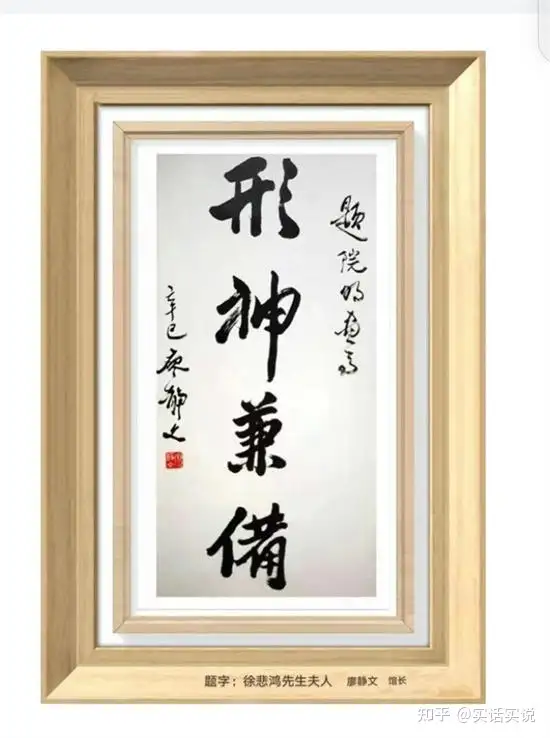 题院明画马
形神兼備
辛巳廖静文
题字：徐悲鸿先生夫人 廖静文 馆长
知乎 @实话实说